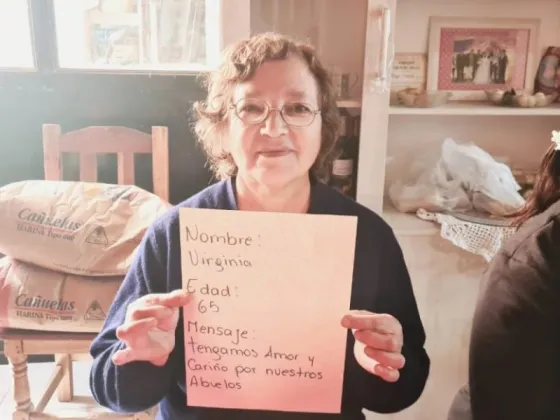 Nombre:
Virginia
Edad:
65
Mensaje:
tengamos Amor y
Cariño por nuestros
Abuelos
Cañuelas
HARINA Tipo 000
Cañuelas
HARINA Tipo